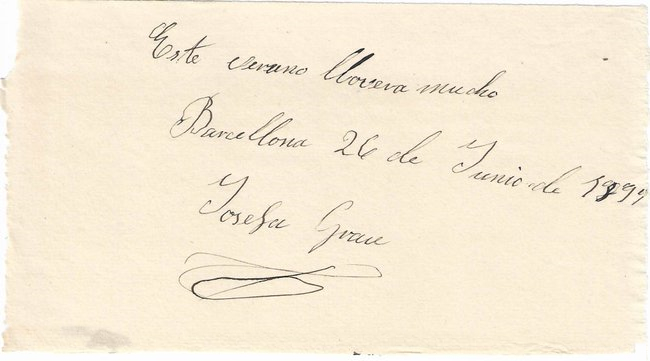 Este verano llovera mucho
Barcellona 26 de Junio de 1899
Josefa Grau